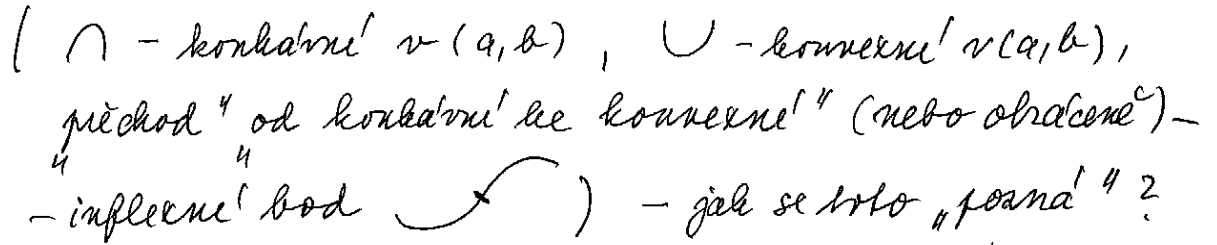 ( ∩ - konkávní v (a,b) , ∪ - konvexní v (a,b),
„přechod" „od konkávní ke konvexní" (nebo obráceně) -
- inflexní bod ) - jak se toto „pozná"?